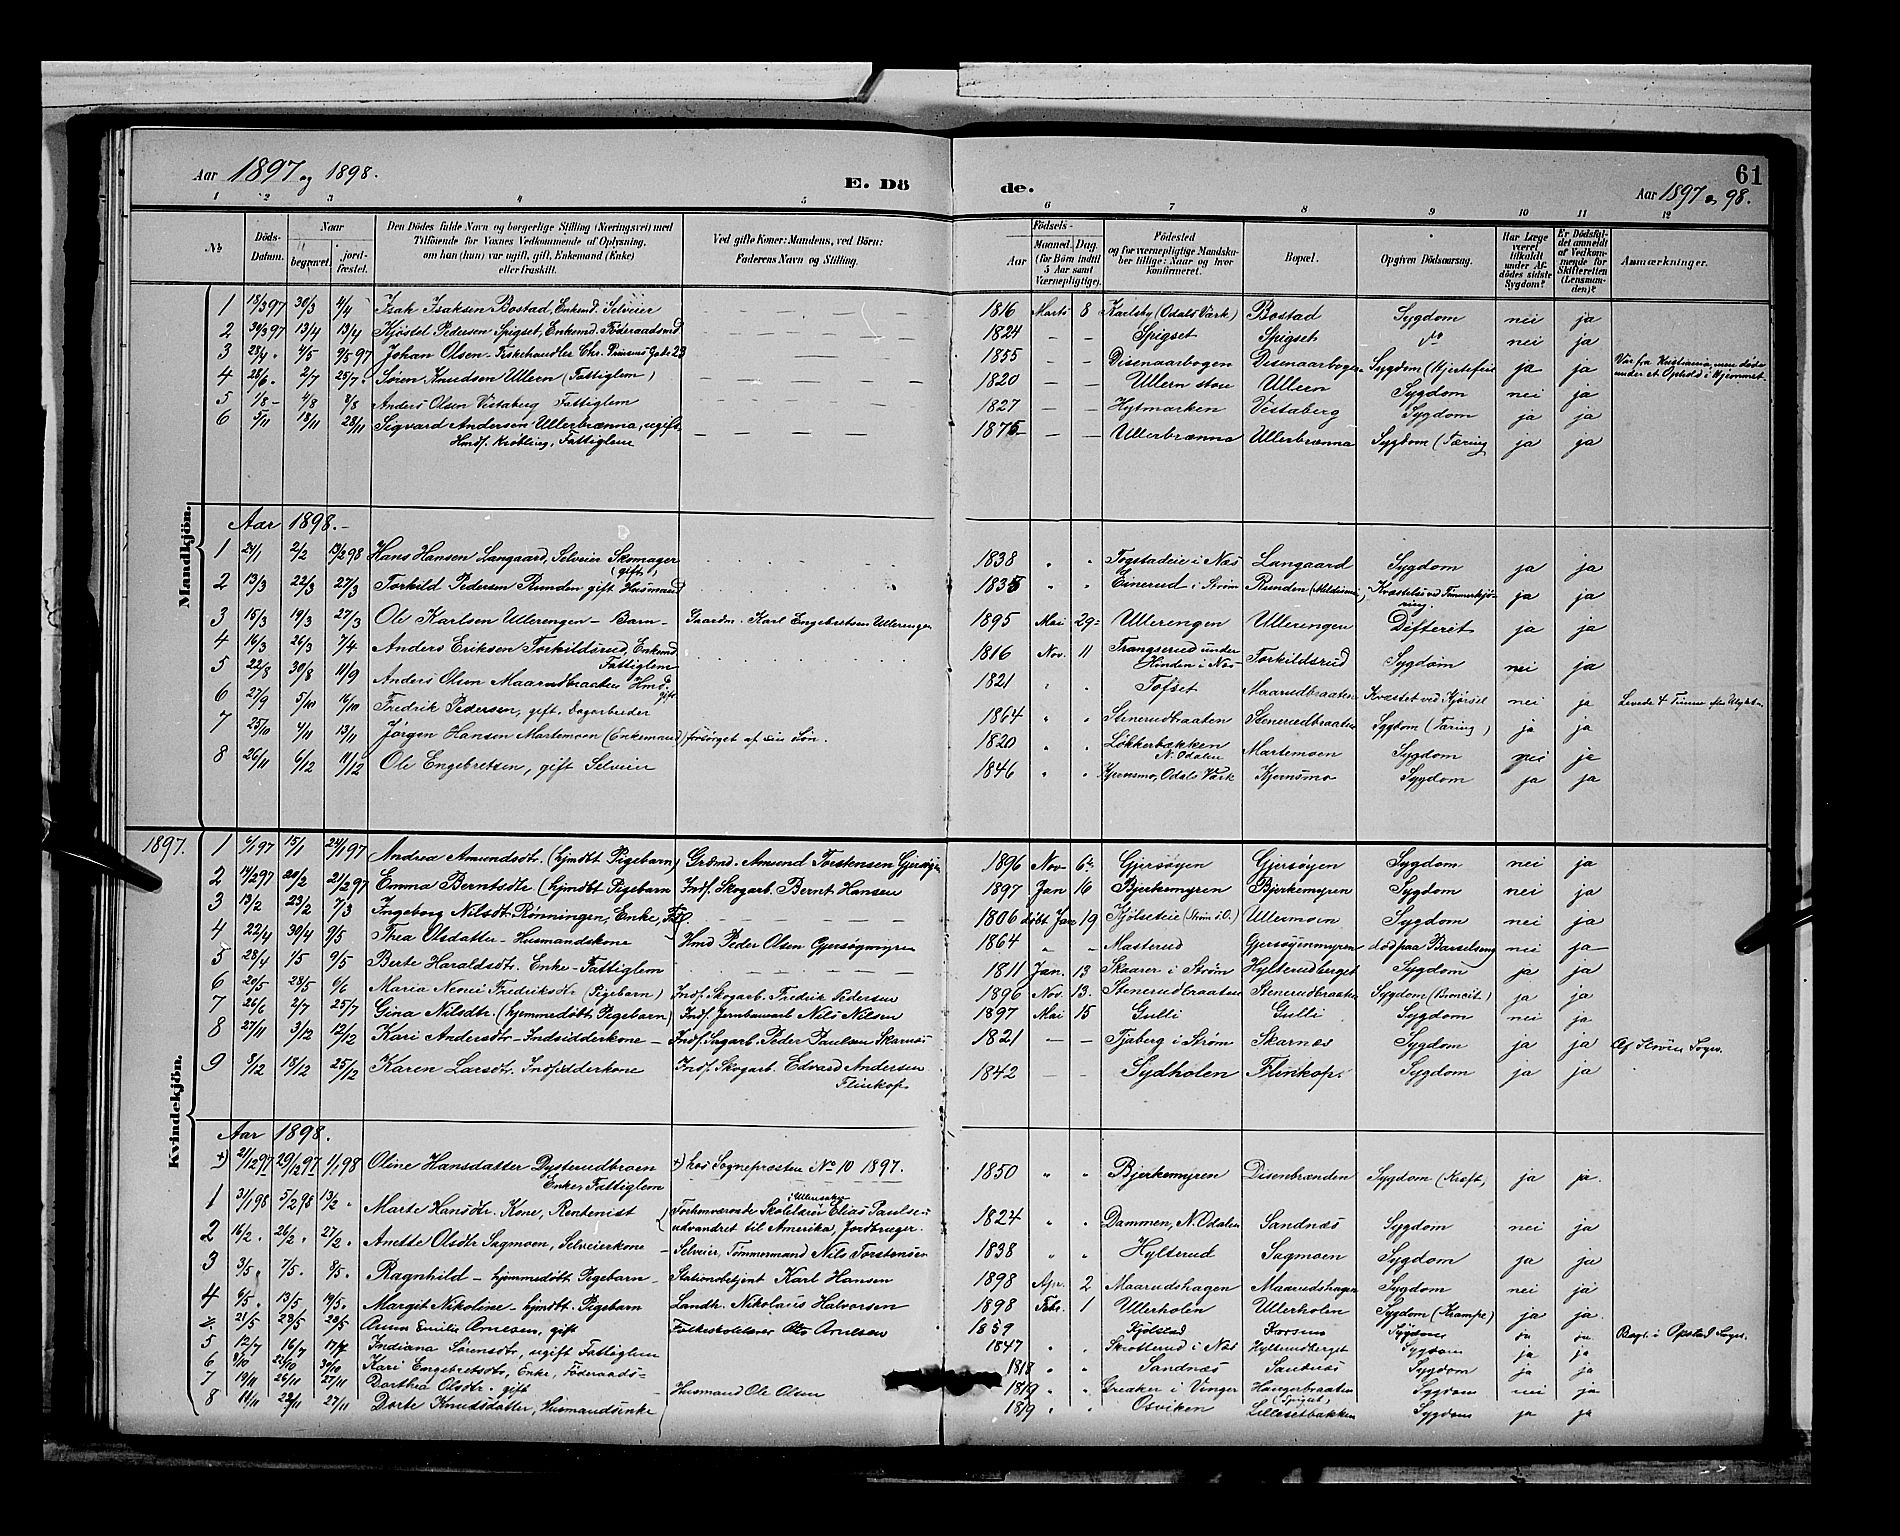 Aar 1897 og 1898.
E. Dö
de.
61
Aar 1897 og 98.
1 2 3 4 5 6 7 8 9 10 11 12
No.
Döds-Datum.
Naar
begravet.
jord-fæstet.
Den Dödes fulde Navn og borgerlige Stilling (Næringsvei) med
Tilföiende for Voxnes Vedkommende af Oplysning,
om han (hun) var ugift, gift, Enkemand (Enke)
eller fraskilt.
Ved gifte Koner: Mandens, ved Börn:
Faderens Navn og Stilling.
Födsels-
Aar
Maaned. Dag.
(for Börn indtil
5 Aar samt
Værnepligtige).
Födested
og for værnepligtige Mandska-
ber tillige: Naar og hvor
Konfirmeret.
Bopæl.
Opgiven Dödsaarsag.
Har Læge
været
tilkaldt
under Af-
dödes sidste
Sygdom?
Er Dödsfal-
det anmeldt
af Vedkom-
mende for
Skifteretten
(Lensman-
den)?
Anmærkninger.
Mandkjön.
1 18/3 97 30/3 4/4 Isak Isaksen Bostad, Enkemd. Selveier 1816 Marts 8 Karlsby (Odals Værk) Bostad Sygdom nei ja
2 30/3 97 13/4 13/4 Kjöstel Pedersen Spigset, Enkemd. Föderaadsmd 1824 Spigset Spigset do nei ja
3 23/4 4/5 9/5 97 Johan Olsen - Fiskehandler Chr. Prinsens Gade 23 1855 Disenaarbogen Disenaarbogen Sygdom (Hjertefeil ja ja Var fra Kristiania, men döde
under et Ophold i Hjemmet.
4 28/6 2/7 25/7 Sören Knudsen Ullern (Fattiglem) 1820 Ullern store Ullern Sygdom ja ja
5 1/8 4/8 8/8 Anders Olsen Vestaberg Fattiglem 1827 Hytmarken Vestaberg Sygdom nei ja
6 5/11 13/11 28/11 Sigvard Andersen Ullerbrænna, ugift 1875 Ullerbrænna Ullerbrænna Sygdom (Tæring ja ja
Hmdf. Kröbling, Fattiglem
Aar 1898.
1 24/1 2/2 13/2 98 Hans Hansen Langaard, Selveier Skomager 1838 Togstadeie i Næs Langaard Sygdom ja ja
(gift)
2 13/3 22/3 27/3 Torkild Pedersen Runden gift Husmand 1835 Einerud i Ström Runden Kvæstelse ved Tömmerkjö-
ring. ja ja
3 15/3 19/3 27/3 Ole Karlsen Ullerengen - Barn - Gaardm. Karl Engebretsen Ullerengen 1895 Mai 29 Ullerengen Ullerengen Difterit ja ja
4 16/3 26/3 7/4 Anders Eriksen Torkildsrud, Enkemd 1816 Nov. 11 Trangserud under
Hinden i Næs Torkildsrud Sygdom nei ja
Fattiglem
5 22/8 30/8 11/9 Anders Olsen Maarudbraaten Hmd. gift 1821 Tofset Maarudbraaten Kvæstet ved Kjörsel nei ja Levede 4 Timer efter Ulykken
6 27/9 5/10 16/10 Fredrik Pedersen, gift, Dagarbeider 1864 Stenerudbraaten Stenerudbraaten Sygdom (Tæring) ja ja
7 25/10 4/11 13/11 Jörgen Hansen Martemoen (Enkemand) forsörget af sin Sön. 1820 Lökkerbækken
N. Odalen Martemoen Sygdom nei ja
8 26/11 6/12 11/12 Ole Engebretsen, gift Selveier 1846 Kjernsmo, Odals Værk Kjernsmo Sygdom ja ja
1897.
Kvindekjön.
1 6/1 97 15/1 24/1 97 Andrea Amundsdtr. (hjmdöbt Pigebarn) Grdmd. Amund Torstensen Gjersöyen 1896 Nov 6 Gjersöyen Gjersöyen Sygdom nei ja
2 14/2 97 20/2 21/2 97 Emma Berntsdtr (hjmdöbt Pigebarn Indf. Skogarb. Bernt Hansen 1897 Jan 16 Bjerkemyren Bjerkemyren Sygdom nei ja
3 13/2 23/2 7/3 Ingeborg Nilsdtr. Rönningen, Enke, 1806 döbt Jan 19 Kjölseteie (Ström i O.) Ullermoen Sygdom nei ja
4 22/4 30/4 9/5 Thea Olsdatter - Husmandskone Hmd Peder Olsen Gjersöymyren 1864 Masterud Gjersöyenmyren död paa Barselseng nei ja
5 28/4 1/5 9/5 Berte Haraldsdtr. Enke - Fattiglem 1811 Jan. 13 Skaarer i Ström Hylterudberget Sygdom ja ja
6 20/5 28/5 6/6 Maria Neoni Fredriksdtr (Pigebarn) Indf. Skogarb. Fredrik Pedersen 1896 Nov. 13. Stenerudbraaten Stenerudbraaten Sygdom (Broncit.) ja ja
7 26/6 2/7 25/7 Gina Nilsdtr. (hjemmedöbt Pigebarn) Indf. Jernbanearb Nils Nilsen 1897 Mai 15 Gulli Gulli Sygdom nei ja
8 27/11 3/12 12/12 Kari Andersdtr - Indsidderkone - Indf. Sagarb. Peder Paulsen Skarnæs 1821 Tjaberg i Ström Skarnæs Sygdom ja ja Af Ströms Sogn.
9 8/12 18/12 25/12 Karen Larsdtr. Indsidderkone Indf. Skogarb. Edvard Andersen
Flinkop 1842 Sydholen Flinkop. Sygdom ja ja
Aar 1898.
+) 21/12 97 29/12 97 1/1 98 Oline Hansdatter Dysterudbroen +) hos Sognepresten No 10 1897. 1850 Bjerkemyren Disenbrænden Sygdom (Kræft) ja ja.
Enke, Fattiglem
1 31/1 98 5/2 98 13/2 Marte Hansdtr. Kone, Rentenist Forhenværende Skolelærer i Ullensaker Elias Paulsen
udvandret til Amerika, Jordbruger. 1824 Dammen, N. Odalen Sandnæs Sygdom nei ja
2 16/2 26/2 27/2 Anette Olsdtr Sagmoen, Selveierkone - Selveier, Tömmermand Nils Torstensen 1838 Hylterud Sagmoen Sygdom ja ja
3 3/5 7/5 8/5 Ragnhild - hjemmedöbt Pigebarn - Stationsbetjent Karl Hansen 1898 Apr. 2 Maarudshagen Maarudshagen Sygdom nei ja
4 6/5 13/5 19/5 Margit Nikoline - hjmdöbt. Pigebarn Landh. Nikolaus Halvorsen 1898 Febr. 1 Ullerholen Ullerholen Sygdom (Krampe) ja ja
21/5 28/5 28/5 Anna Emilie Arnesen, gift Folkeskolelærer Otto Arnesen 1859 Kjölstad Korsmo Sygdom ja ja Begr. i Opstad Sogn.
5 12/7 16/7 17/7 Indiana Sörensdtr, ugift Fattiglem 1847 Skrotterud i Næs Hylterudberget Sygdom ja ja
6 9/10 22/10 30/10 Kari Engebretsdtr, Enke, Föderaads- 1818 Sandnæs Sandnæs Sygdom ja ja
7 19/11 26/11 27/11 Dorthea Olsdtr. gift Husmand Ole Olsen 1819 Greaker i Vinger Haugerbraaten Sygdom nei ja
8 18/11 22/11 27/11 Dorte Knudsdatter, Husmandsenke 1819 Osviken Lillesetbakken Sygdom ja ja